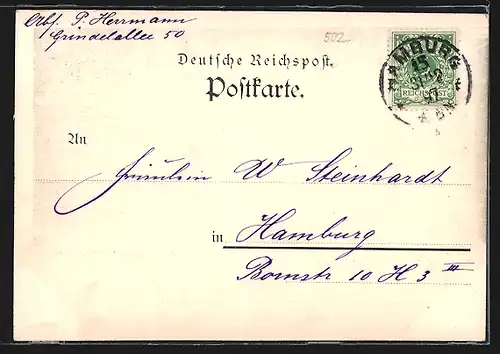 Abs. P. Herrmann
Grindelallee 50
502
Deutsche Reichspost.
Postkarte.
HAMBURG
15
97
REICHSPOST
An
Fräulein W Steinhardt
in Hamburg
Bornstr 10 H 3 III